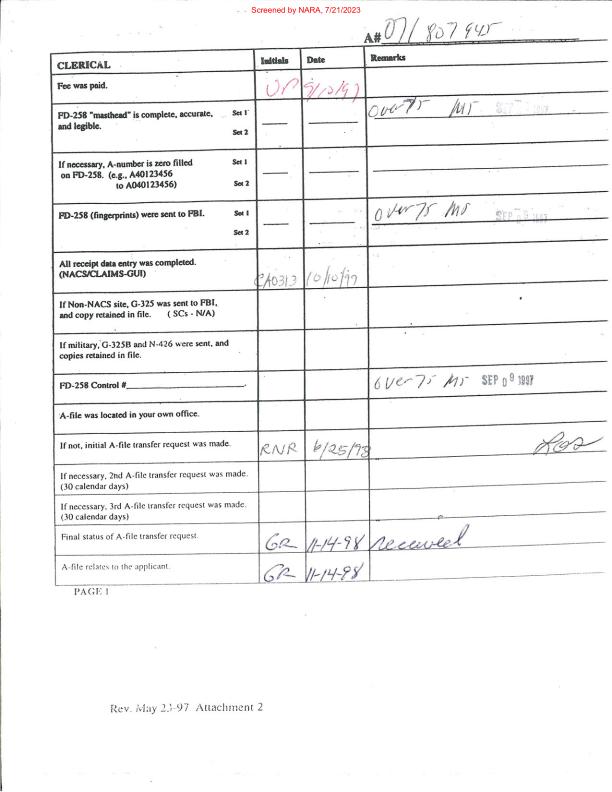 Screened by NARA, 7/21/2023
A# 071 807 945
CLERICAL Initials Date Remarks
Fee was paid. 9/10/97
FD-258 "masthead" is complete, accurate, Set 1 over 75 MS SEP 1997
and legible.
Set 2
If necessary, A-number is zero filled Set 1
on FD-258. (e.g., A40123456
to A040123456) Set 2
FD-258 (fingerprints) were sent to FBI. Set 1 over 75 MS SEP 09 1997
Set 2
All receipt data entry was completed.
(NACS/CLAIMS-GUI) CA0313 10/10/97
If Non-NACS site, G-325 was sent to FBI,
and copy retained in file. ( SCs - N/A)
If military, G-325B and N-426 were sent, and
copies retained in file.
FD-258 Control #. over 75 MS SEP 09 1997
A-file was located in your own office.
If not, initial A-file transfer request was made. RNR 6/25/98 Los
If necessary, 2nd A-file transfer request was made.
(30 calendar days)
If necessary, 3rd A-file transfer request was made.
(30 calendar days)
Final status of A-file transfer request. GR 11-14-98 received
A-file relates to the applicant. GR 11-14-98
PAGE 1
Rev. May 23-97 Attachment 2